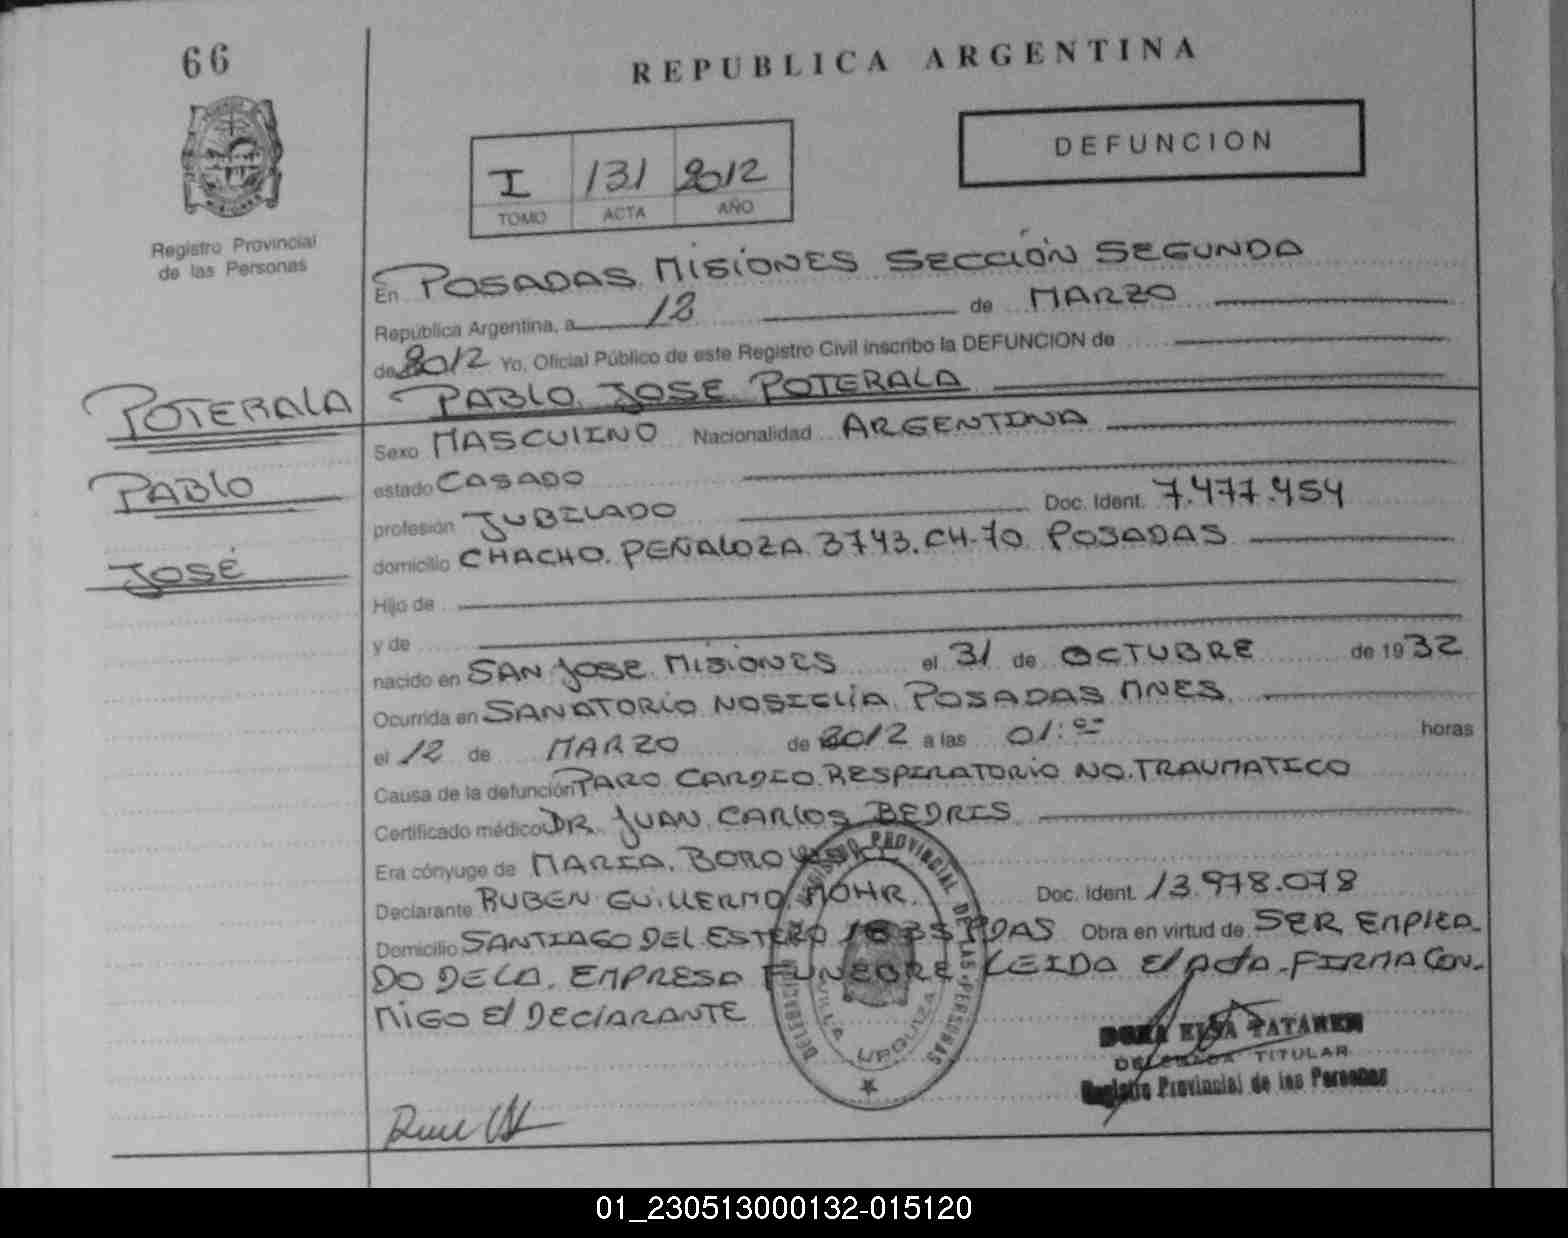 66
REPUBLICA ARGENTINA
DEFUNCION
I 131 2012
TOMO ACTA AÑO
Registro Provincial
de las Personas
En POSADAS MISIONES SECCIÓN SEGUNDA
República Argentina, a 12 de MARZO
de 2012 Yo, Oficial Público de este Registro Civil inscribo la DEFUNCION de
POTERALA PABLO JOSE POTERALA
Sexo MASCULINO Nacionalidad ARGENTINA
PABLO estado CASADO
profesión JUBILADO Doc. Ident. 7.477.454
JOSÉ domicilio CHACHO PEÑALOZA 3743.CH.70 POSADAS
Hijo de
y de
nacido en SAN JOSE MISIONES el 31 de OCTUBRE de 1932
Ocurrida en SANATORIO NOSIGLIA POSADAS MNES
el 12 de MARZO de 2012 a las 01: horas
Causa de la defunción PARO CARDIO RESPIRATORIO NO TRAUMATICO
Certificado médico DR JUAN CARLOS BEDRIS
Era cónyuge de MARIA
Declarante RUBEN GUILLERMO MOHR Doc. Ident. 13.978.078
Domicilio SANTIAGO DEL ESTERO 1835 PDAS Obra en virtud de SER EMPLEA-
DO DE LA EMPRESA FUNEBRE LEIDA el acta FIRMA CON-
MIGO El DEClARANTE
REGISTRO PROVINCIAL DE LAS PERSONAS
VILLA URQUIZA
TITULAR
Registro Provincial de las Personas
01_230513000132-015120